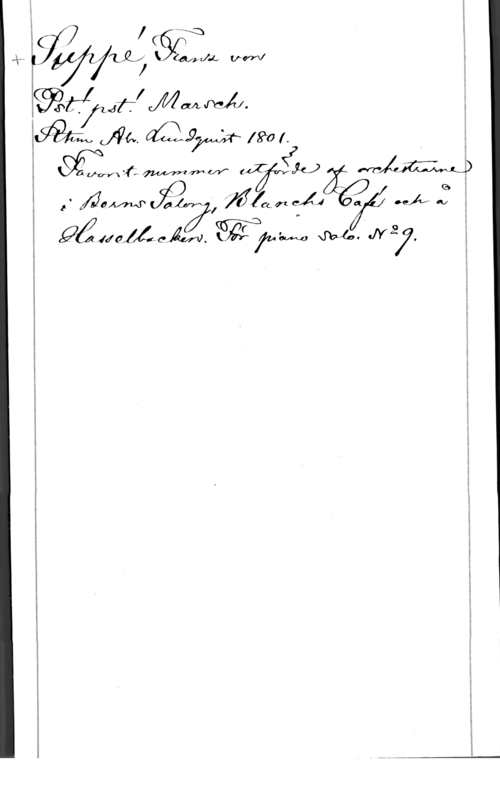 + Suppé, Franz von
Pst! pst! Marsch.
Sthm Abr. Lundquist 1801.
3
Favorit-nummer utförde af orchestrarne
i Berns Salong, Blanchs Café och å
Hasselbacken. För piano solo. Nº 9.